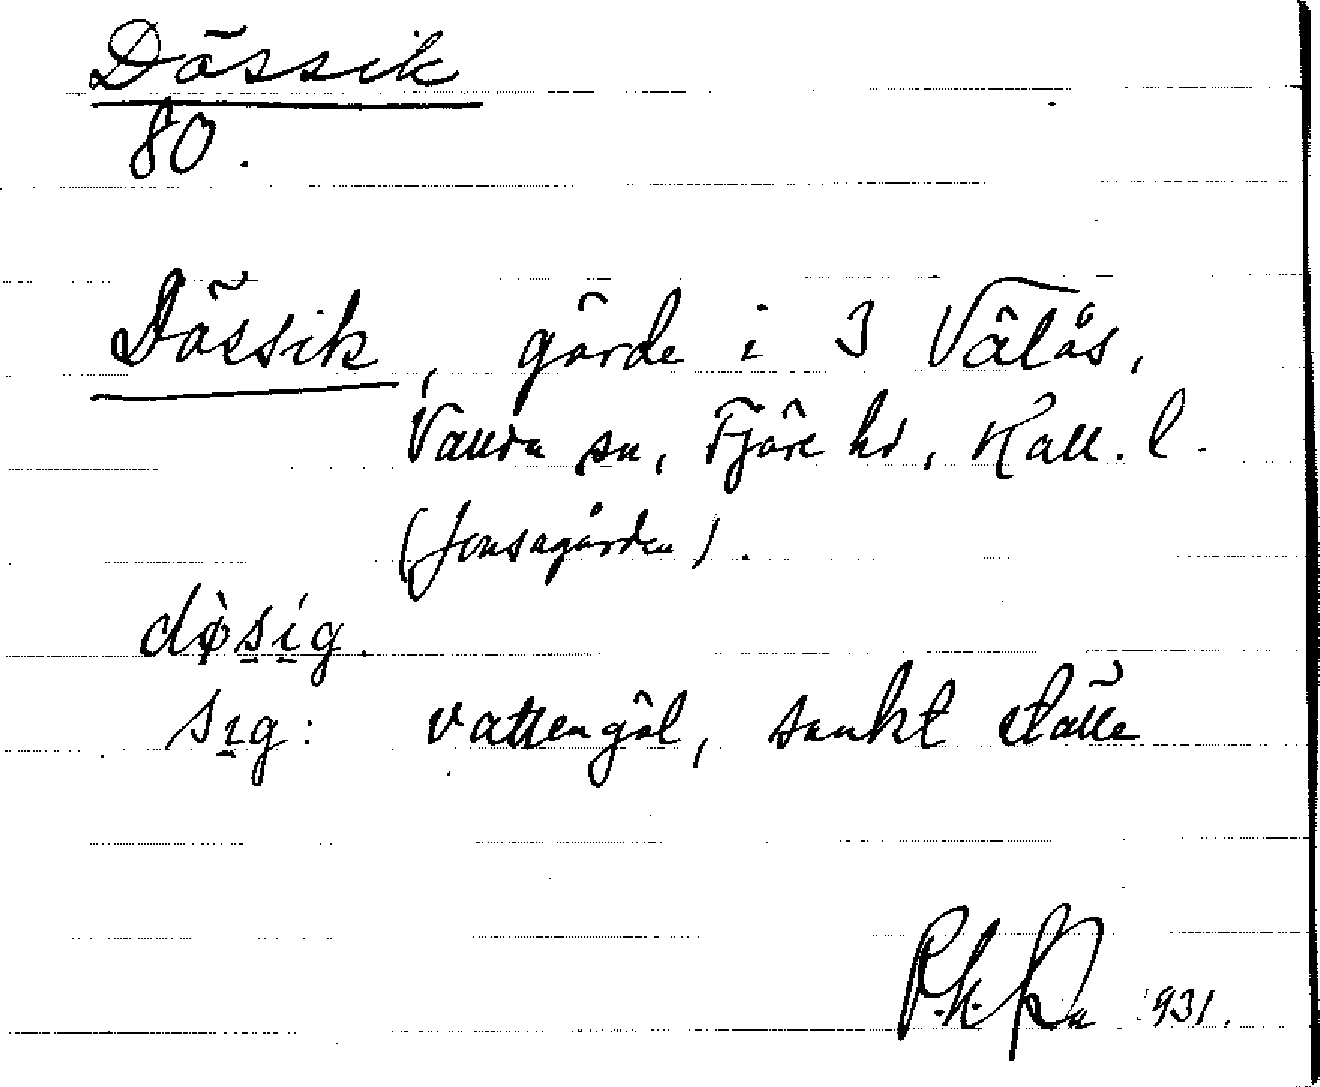 Dössik
80.
Dössik, gärde i 3 Välås,
Vallda sn, Fjäre hd, Hall. l.
(Jonsagården).
dø̀si̱g.
sı̱g: vattengöl, sankt ställe
1931.